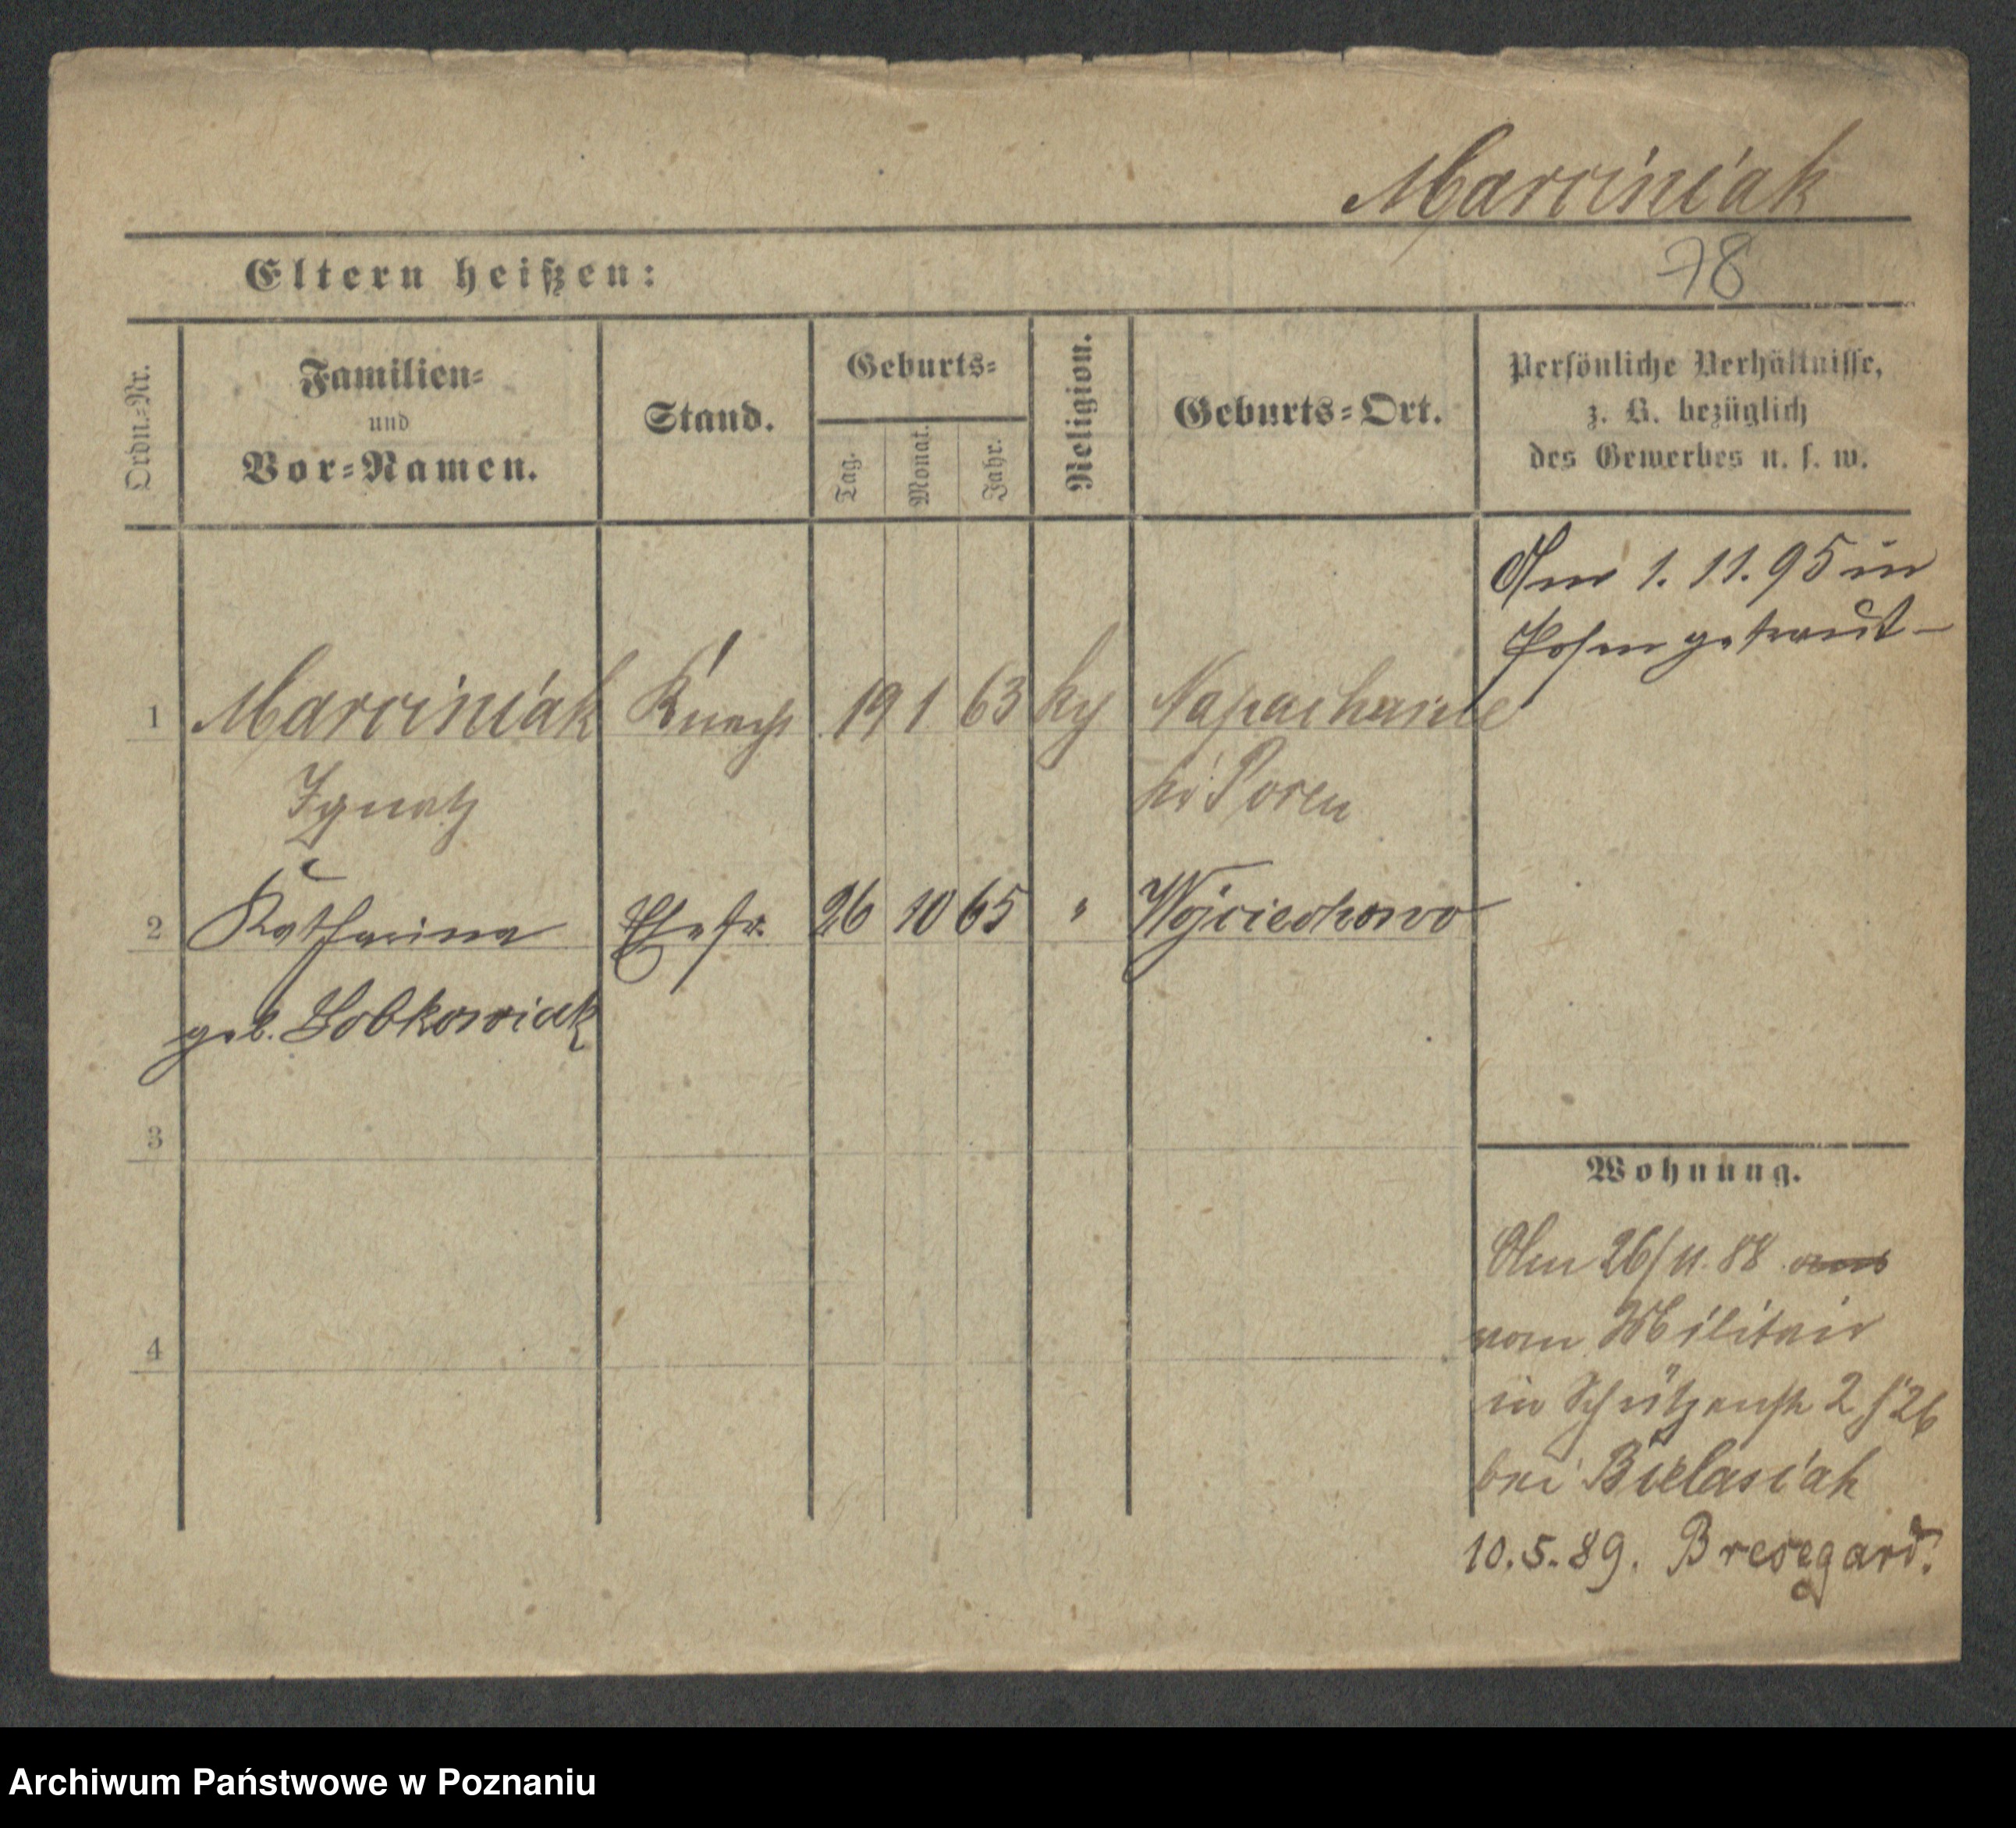 Marciniak
78
Eltern heißen:
Ordn.-Nr.
Familien-
und
Vor-Namen.
Stand.
Geburts-
Tag.
Monat.
Jahr.
Religion.
Geburts-Ort.
Persönliche Verhältnisse,
z. B. bezüglich
des Gewerbes u. s. w.
Am 1. 11. 95 in
Posen getraut -
1 Marciniak Knecht 19 1 63 Napachanie
Ignatz
2 Katharina Ehefr. 26 10 65 " Wojciechowo
geb.
3
4
Wohnung.
Am 26/11. 88 aus
vom Militair
in Schützenstr 2
bei Bielasiak
10.5.89. Bresegard.
Archiwum Państwowe w Poznaniu